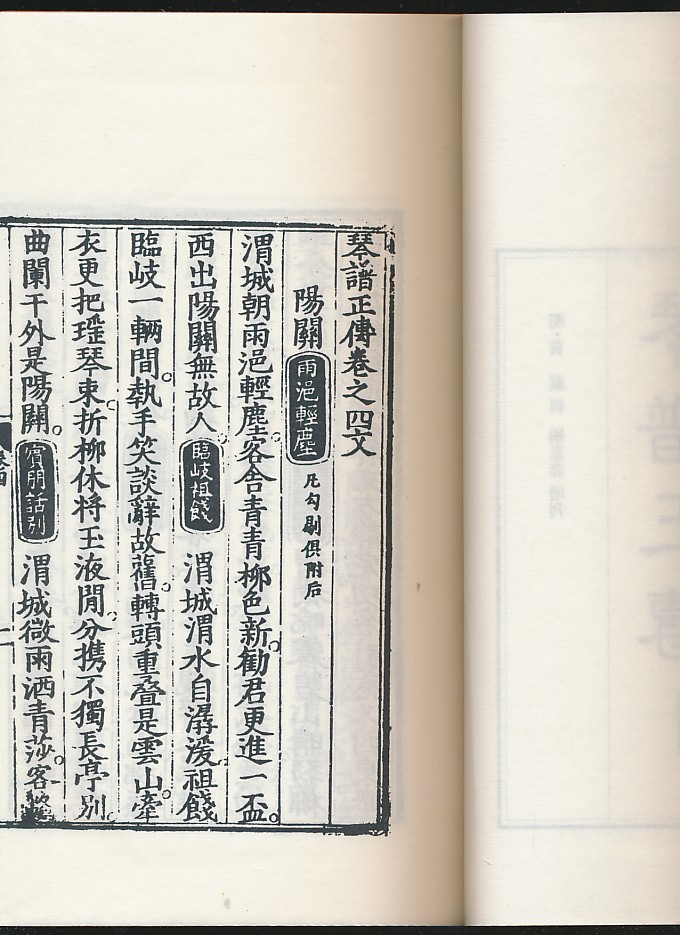 琴譜正傳卷之四文
陽關 雨浥輕塵 凡勾剔俱附后
渭城朝雨浥輕塵。客舍青青柳色新。勸君更進一盃。
西出陽關無故人。臨岐祖餞 渭城渭水自潺湲。祖餞
臨岐一輛間。執手笑談辭故舊。轉頭重叠是雲山。牽
衣更把瑶琴束。折柳休將玉液閒。分携不獨長亭別。
曲闌干外是陽關。賓朋話别 渭城微雨洒青莎。客